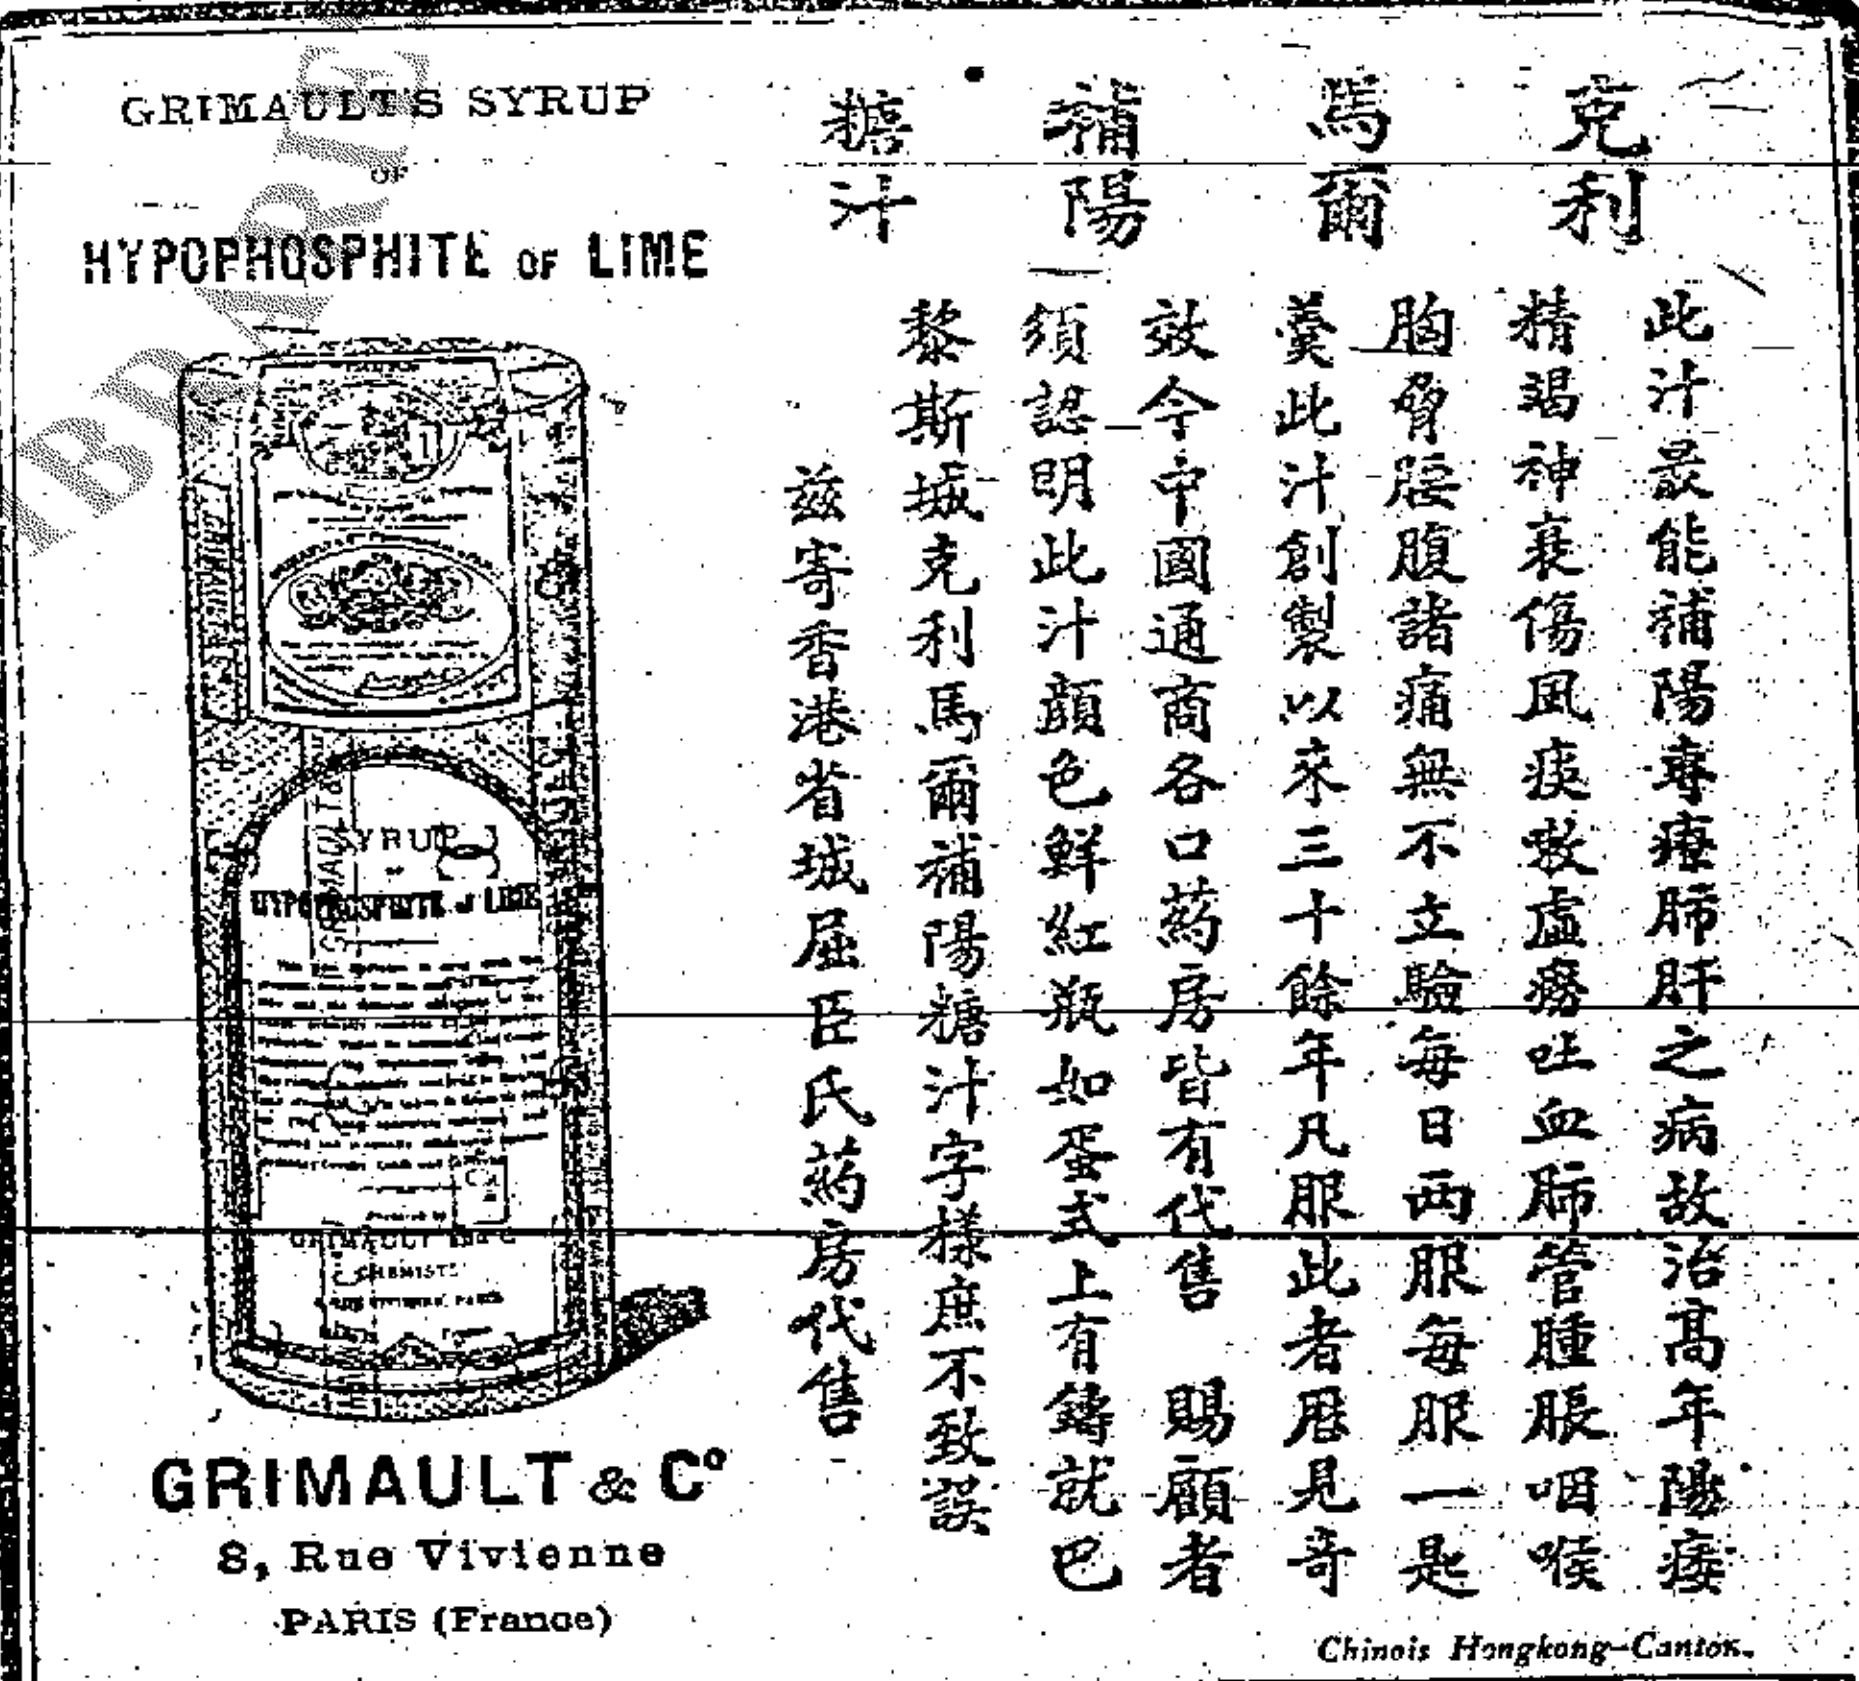 GRIMAULT'S SYRUP
OF
HYPOPHOSPHITE OF LIME
SYRUP
HYPOPHOSPHITE of LIME
GRIMAULT AND C
CHEMISTS
GRIMAULT & Cº
8, Rue Vivienne
PARIS (France)
克利
馬爾
補陽
糖汁
此汁最能補陽專療肺肝之病故治高年陽痿
精竭神衰傷風痰嗽虛癆吐血肺管腫脹咽喉
胸脅腰腹諸痛無不立驗每日兩服每服一匙
羹此汁創製以來三十餘年凡服此者歷見奇
效今中國通商各口葯房皆有代售 賜顧者
須認明此汁顏色鮮紅瓶如蛋式上有鑄就巴
黎斯城克利馬爾補陽糖汁字樣庶不致誤
茲寄香港省城屈臣氏葯房代售
Chinois Hongkong-Canton.